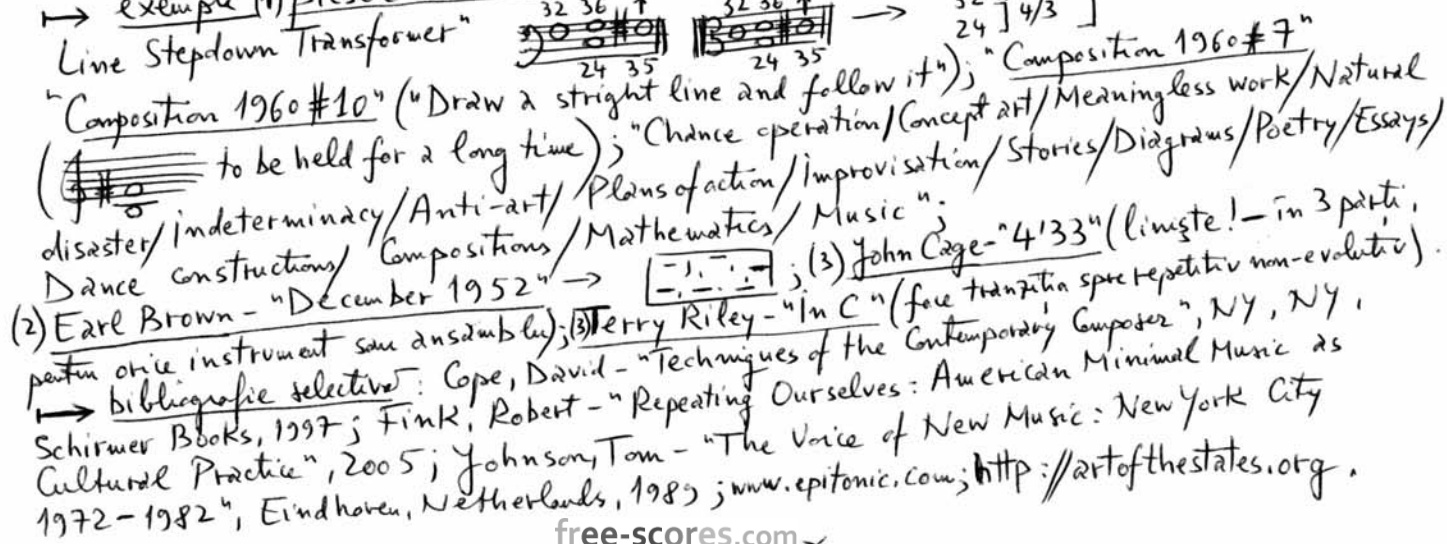 ↦ exemple (1)
32 36 32 36
Line Stepdown Transformer" 24 35 24 35 → 24 ] 4/3 ]
"Composition 1960 #10" ("Draw a stright line and follow it"); "Composition 1960 #7"
( to be held for a long time); "Chance operation/Concept art/Meaningless work/Natural
disaster/indeterminacy/Anti-art/Plans of action/Improvisation/Stories/Diagrams/Poetry/Essays/
Dance constructions/Compositions/Mathematics/Music";
(2) Earl Brown - "December 1952" → ; (3) John Cage - "4'33" (liniște! - în 3 părți,
pentru orice instrument sau ansamblu); (3) Terry Riley - "In C" (face tranziția spre repetitiv non-evolutiv).
↦ bibliografie selectivă: Cope, David - "Techniques of the Contemporary Composer", NY, NY,
Schirmer Books, 1997; Fink, Robert - "Repeating Ourselves: American Minimal Music as
Cultural Practice", 2005; Johnson, Tom - "The Voice of New Music: New York City
1972-1982", Eindhoven, Netherlands, 1989; www.epitonic.com; http://artofthestates.org.
free-scores.com